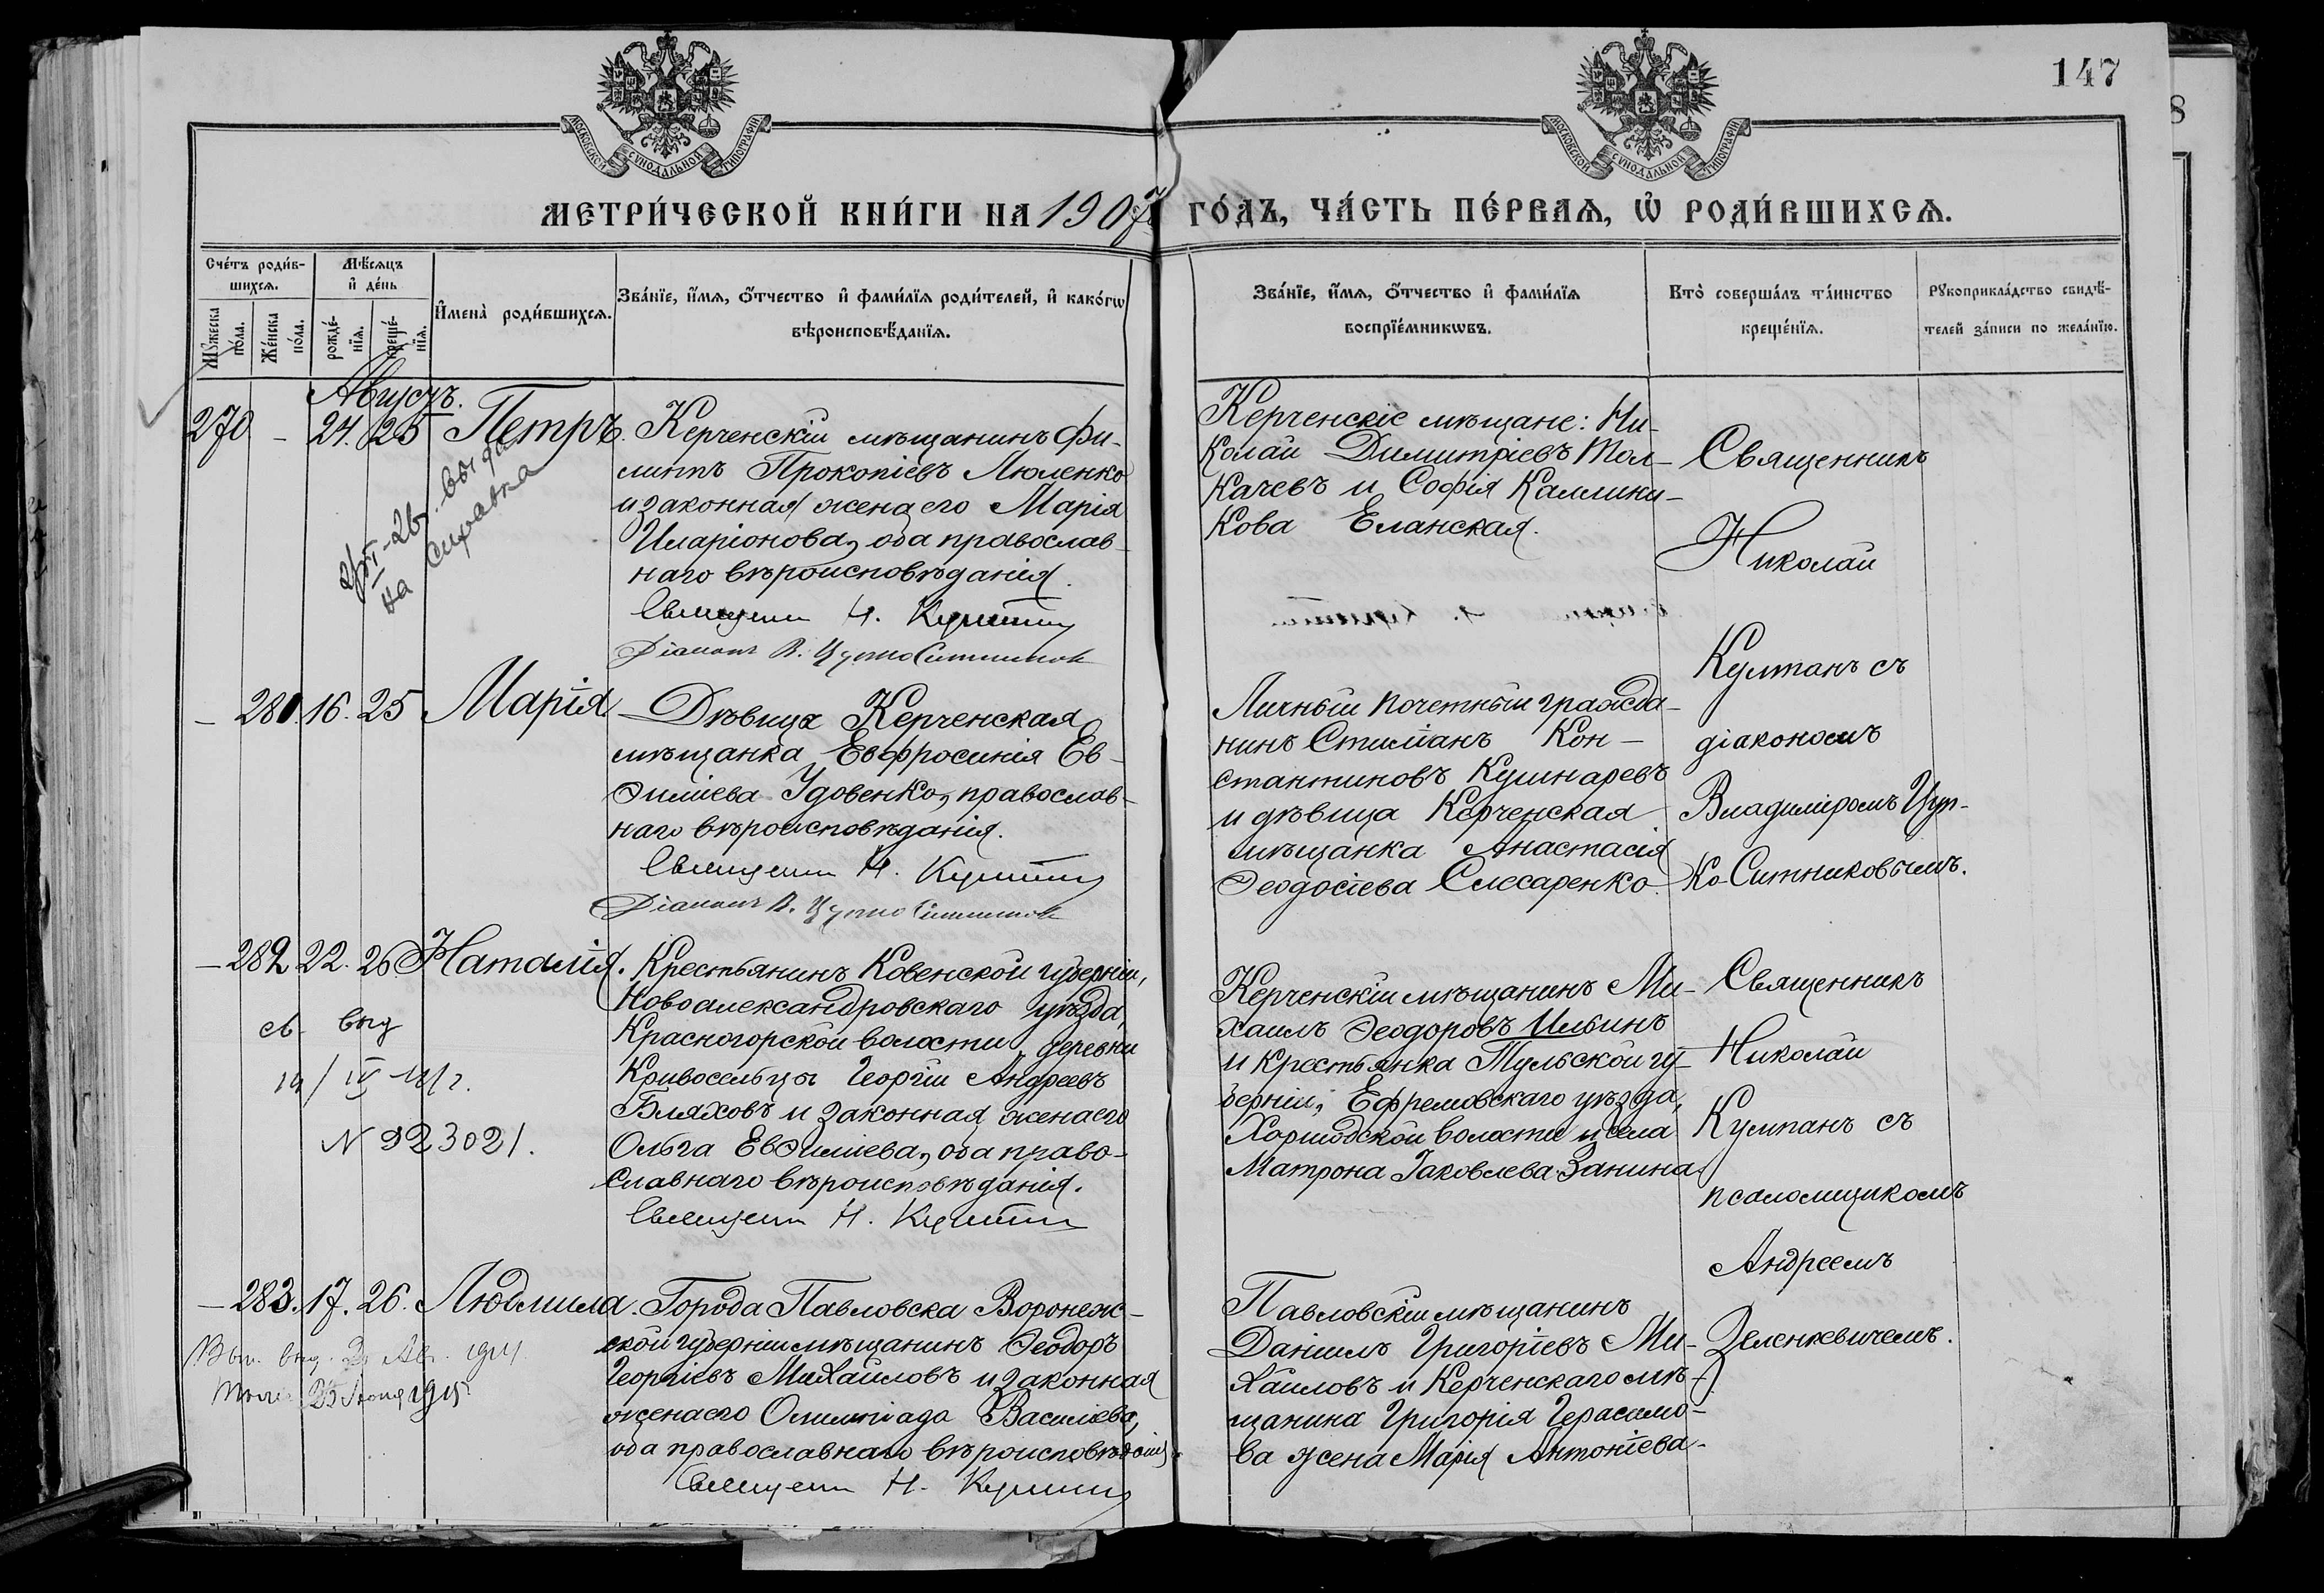 147
МОСКОВСКОЙ СѴНОДАЛЬНОЙ ТИПОГРАФІИ
МОСКОВСКОЙ СѴНОДАЛЬНОЙ ТИПОГРАФІИ
МЕТРИ́ЧЕСКОЙ КНИ́ГИ НА 1907 ГО́ДЪ, ЧА́СТЬ ПЕ́РВАѦ, Ѡ҆ РОДИ́ВШИХСѦ.
Сче́тъ роди́в-
шихсѧ.
Мꙋ́жеска по́ла.
Же́нска по́ла.
Мѣ́сѧцъ и҆ де́нь
рожде́-
нїѧ.
креще́-
нїѧ.
И҆мена̀ роди́вшихсѧ.
Зва́нїе, и҆́мѧ, ѻ҆́тчество и҆ фами́лїѧ роди́телей, и҆ како́гѡ
вѣроисповѣ́данїѧ.
Зва́нїе, и҆́мѧ, ѻ҆́тчество и҆ фами́лїѧ
воспрїе́мникѡвъ.
Кто̀ соверша́лъ та́инство
креще́нїѧ.
Рꙋкоприкла́дство свидѣ́-
телей за́писи по жела́нїю.
Августъ.
270 - 24. 25 Петръ.
Керченскій мѣщанинъ Фи-
липпъ Прокопіевъ Люленко
и законная жена его Марія
Иларіонова, оба православ-
наго вѣроисповѣданія.
Священн Н. Кумпан
Діаконъ В. Цупко Ситников
выдана
на справка
Керченскіе мѣщане: Ни-
колай Димитріевъ Тол-
качевъ и Софія Каллини-
кова Еланская.
Священникъ
Николай
Кумпанъ съ
діакономъ
Владиміромъ Цуп-
ко-Ситниковымъ.
- 281. 16. 25 Марія.
Дѣвица Керченская
мѣщанка Евфросинія Ев-
ѳиміева Удовенко, православ-
наго вѣроисповѣданія.
Священн Н. Кумпан
Діаконъ В. Цупко Ситников
Личный почетный гражда-
нинъ Стиліанъ Кон-
стантиновъ Кушнаревъ
и дѣвица Керченская
мѣщанка Анастасія
Ѳеодосіева Слесаренко.
- 282 22. 26. Наталія.
св. выд
N 923021.
Крестьянинъ Ковенской губерніи,
Новоалександровскаго уѣзда,
Красногорской волости, деревни
Кривосельцы Георгій Андреевъ
Бляховъ и законная жена его
Ольга Евѳиміева, оба право-
славнаго вѣроисповѣданія.
Священн Н. Кумпан
Керченскій мѣщанинъ Ми-
хаилъ Ѳеодоровъ Ильинъ
и крестьянка Тульской гу-
берніи, Ефремовскаго уѣзда,
волости и села
Матрона Іаковлева Занина.
Священникъ
Николай
Кумпанъ съ
псаломщикомъ
Андреемъ
Зеленкевичемъ.
- 283. 17. 26. Людмила.
выд. Ав. 1914.
25 Іюня 1915
Города Павловска Воронеж-
ской губерніи мѣщанинъ Ѳеодоръ
Георгіевъ Михайловъ и законная
жена его Олимпіада Василіева,
оба православнаго вѣроисповѣданія.
Священн Н. Кумпан
Павловскій мѣщанинъ
Даніилъ Григоріевъ Ми-
хайловъ и Керченскаго мѣ-
щанина Григорія Герасимо-
ва жена Марія Антоніева.